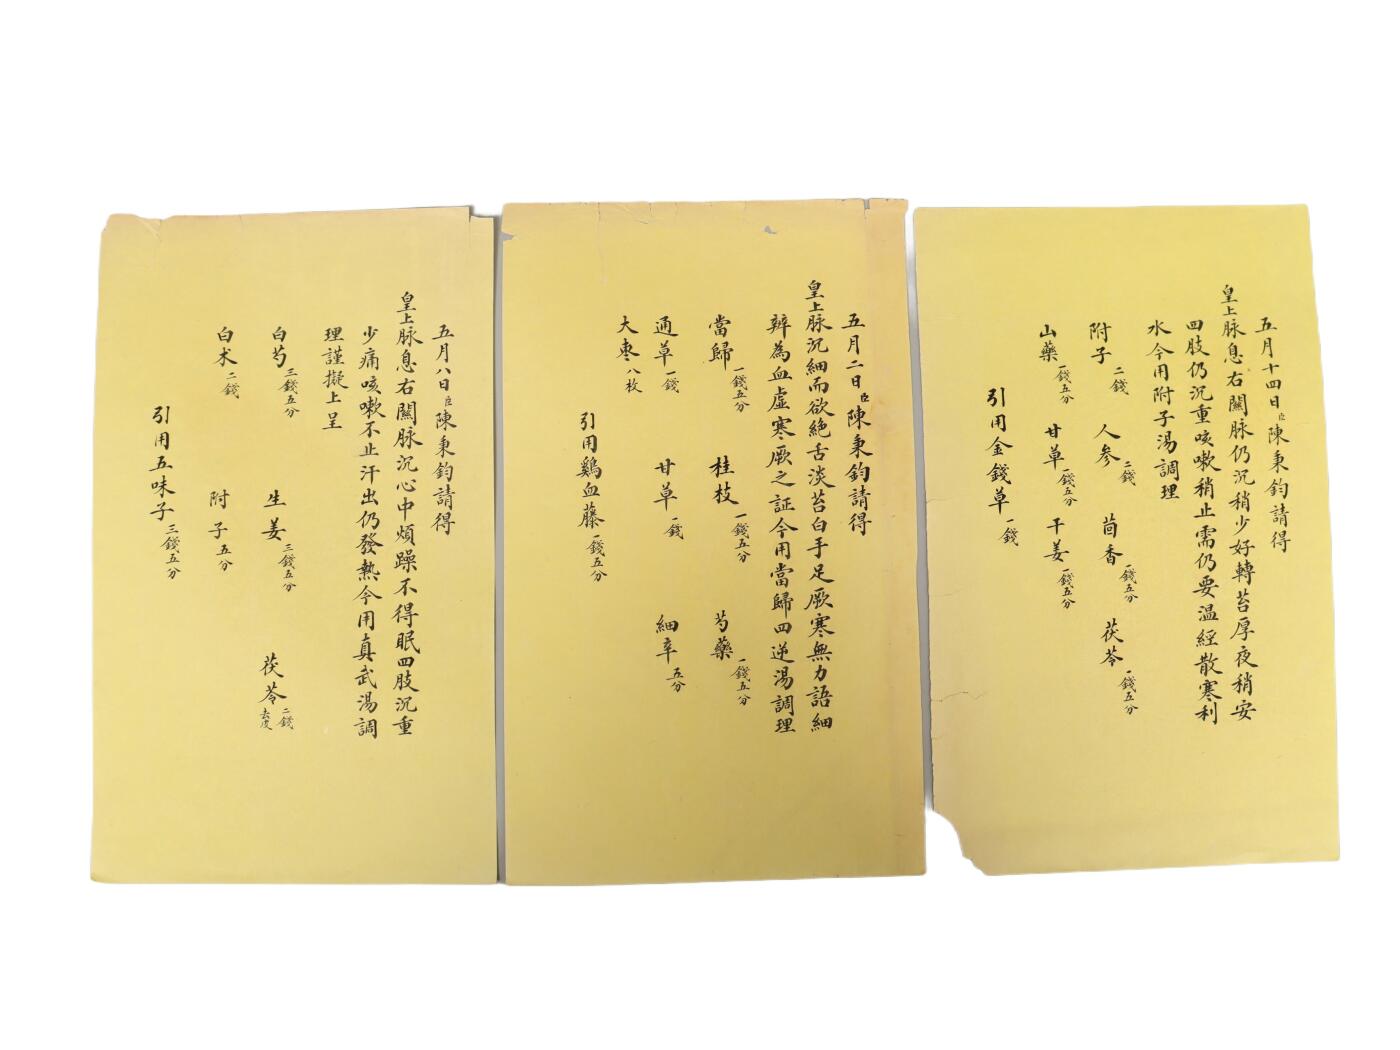 五月十四日臣陳秉鈞請得
皇上脉息右關脉仍沉稍少好轉苔厚夜稍安
四肢仍沉重咳嗽稍止需仍要温經散寒利
水今用附子湯調理
附子二錢 人参二錢 茴香一錢五分 茯苓一錢五分
山藥一錢五分 甘草一錢五分 干姜一錢五分
引用金錢草一錢
五月二日臣陳秉鈞請得
皇上脉沉細而欲絶舌淡苔白手足厥寒無力語細
辨為血虚寒厥之証今用當歸四逆湯調理
當歸一錢五分 桂枝一錢五分 芍藥一錢五分
通草一錢 甘草一錢 細辛五分
大枣八枚
引用鷄血藤一錢五分
五月八日臣陳秉鈞請得
皇上脉息右關脉沉心中煩躁不得眠四肢沉重
少痛咳嗽不止汗出仍發熱今用真武湯調
理謹擬上呈
白芍三錢五分 生姜三錢五分 茯苓二錢去皮
白术二錢 附子五分
引用五味子三錢五分